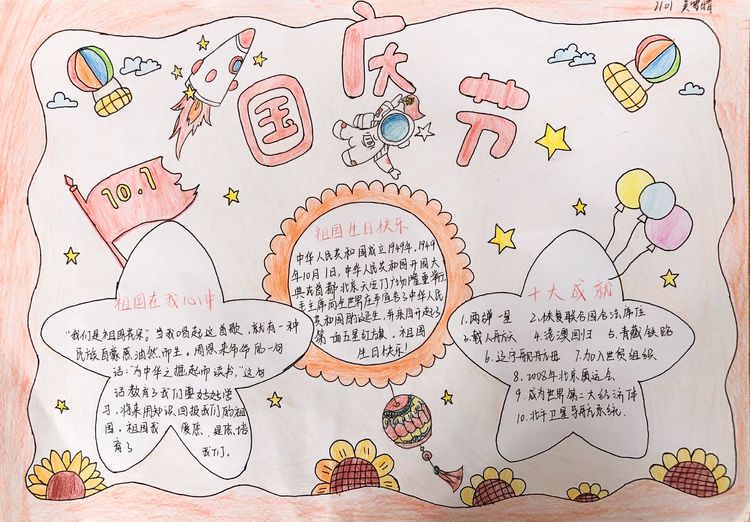 1101
国庆节
10.1
祖国在我心中
"我们是祖国花朵"当我唱起这首歌,就有一种
民族自豪感油然而生。周恩来爷爷的一句
话:"为中华之掘起而读书,"这句
话教育了我们要好好学
习,将来用知识回报我们的祖
国。祖国我 是您培
育了 我们。
祖国生日快乐
中华人民共和国成立1949年,1949
年10月1日,中华人民共和国开国大
典在首都北京天安门广场隆重举行.
毛主席向全世界庄严宣告了中华人民
共和国的诞生,并亲自升起了
第一面五星红旗。祖国
生日快乐!
十大成就
1.两弹一星 2.恢复联合国合法席位
3.载人航天 4.港澳回归 5.青藏铁路
6.辽宁号航母 7.加入世贸组织
8.2008年北京奥运会
9.成为世界第二大经济体
10.北斗卫星导航系统.